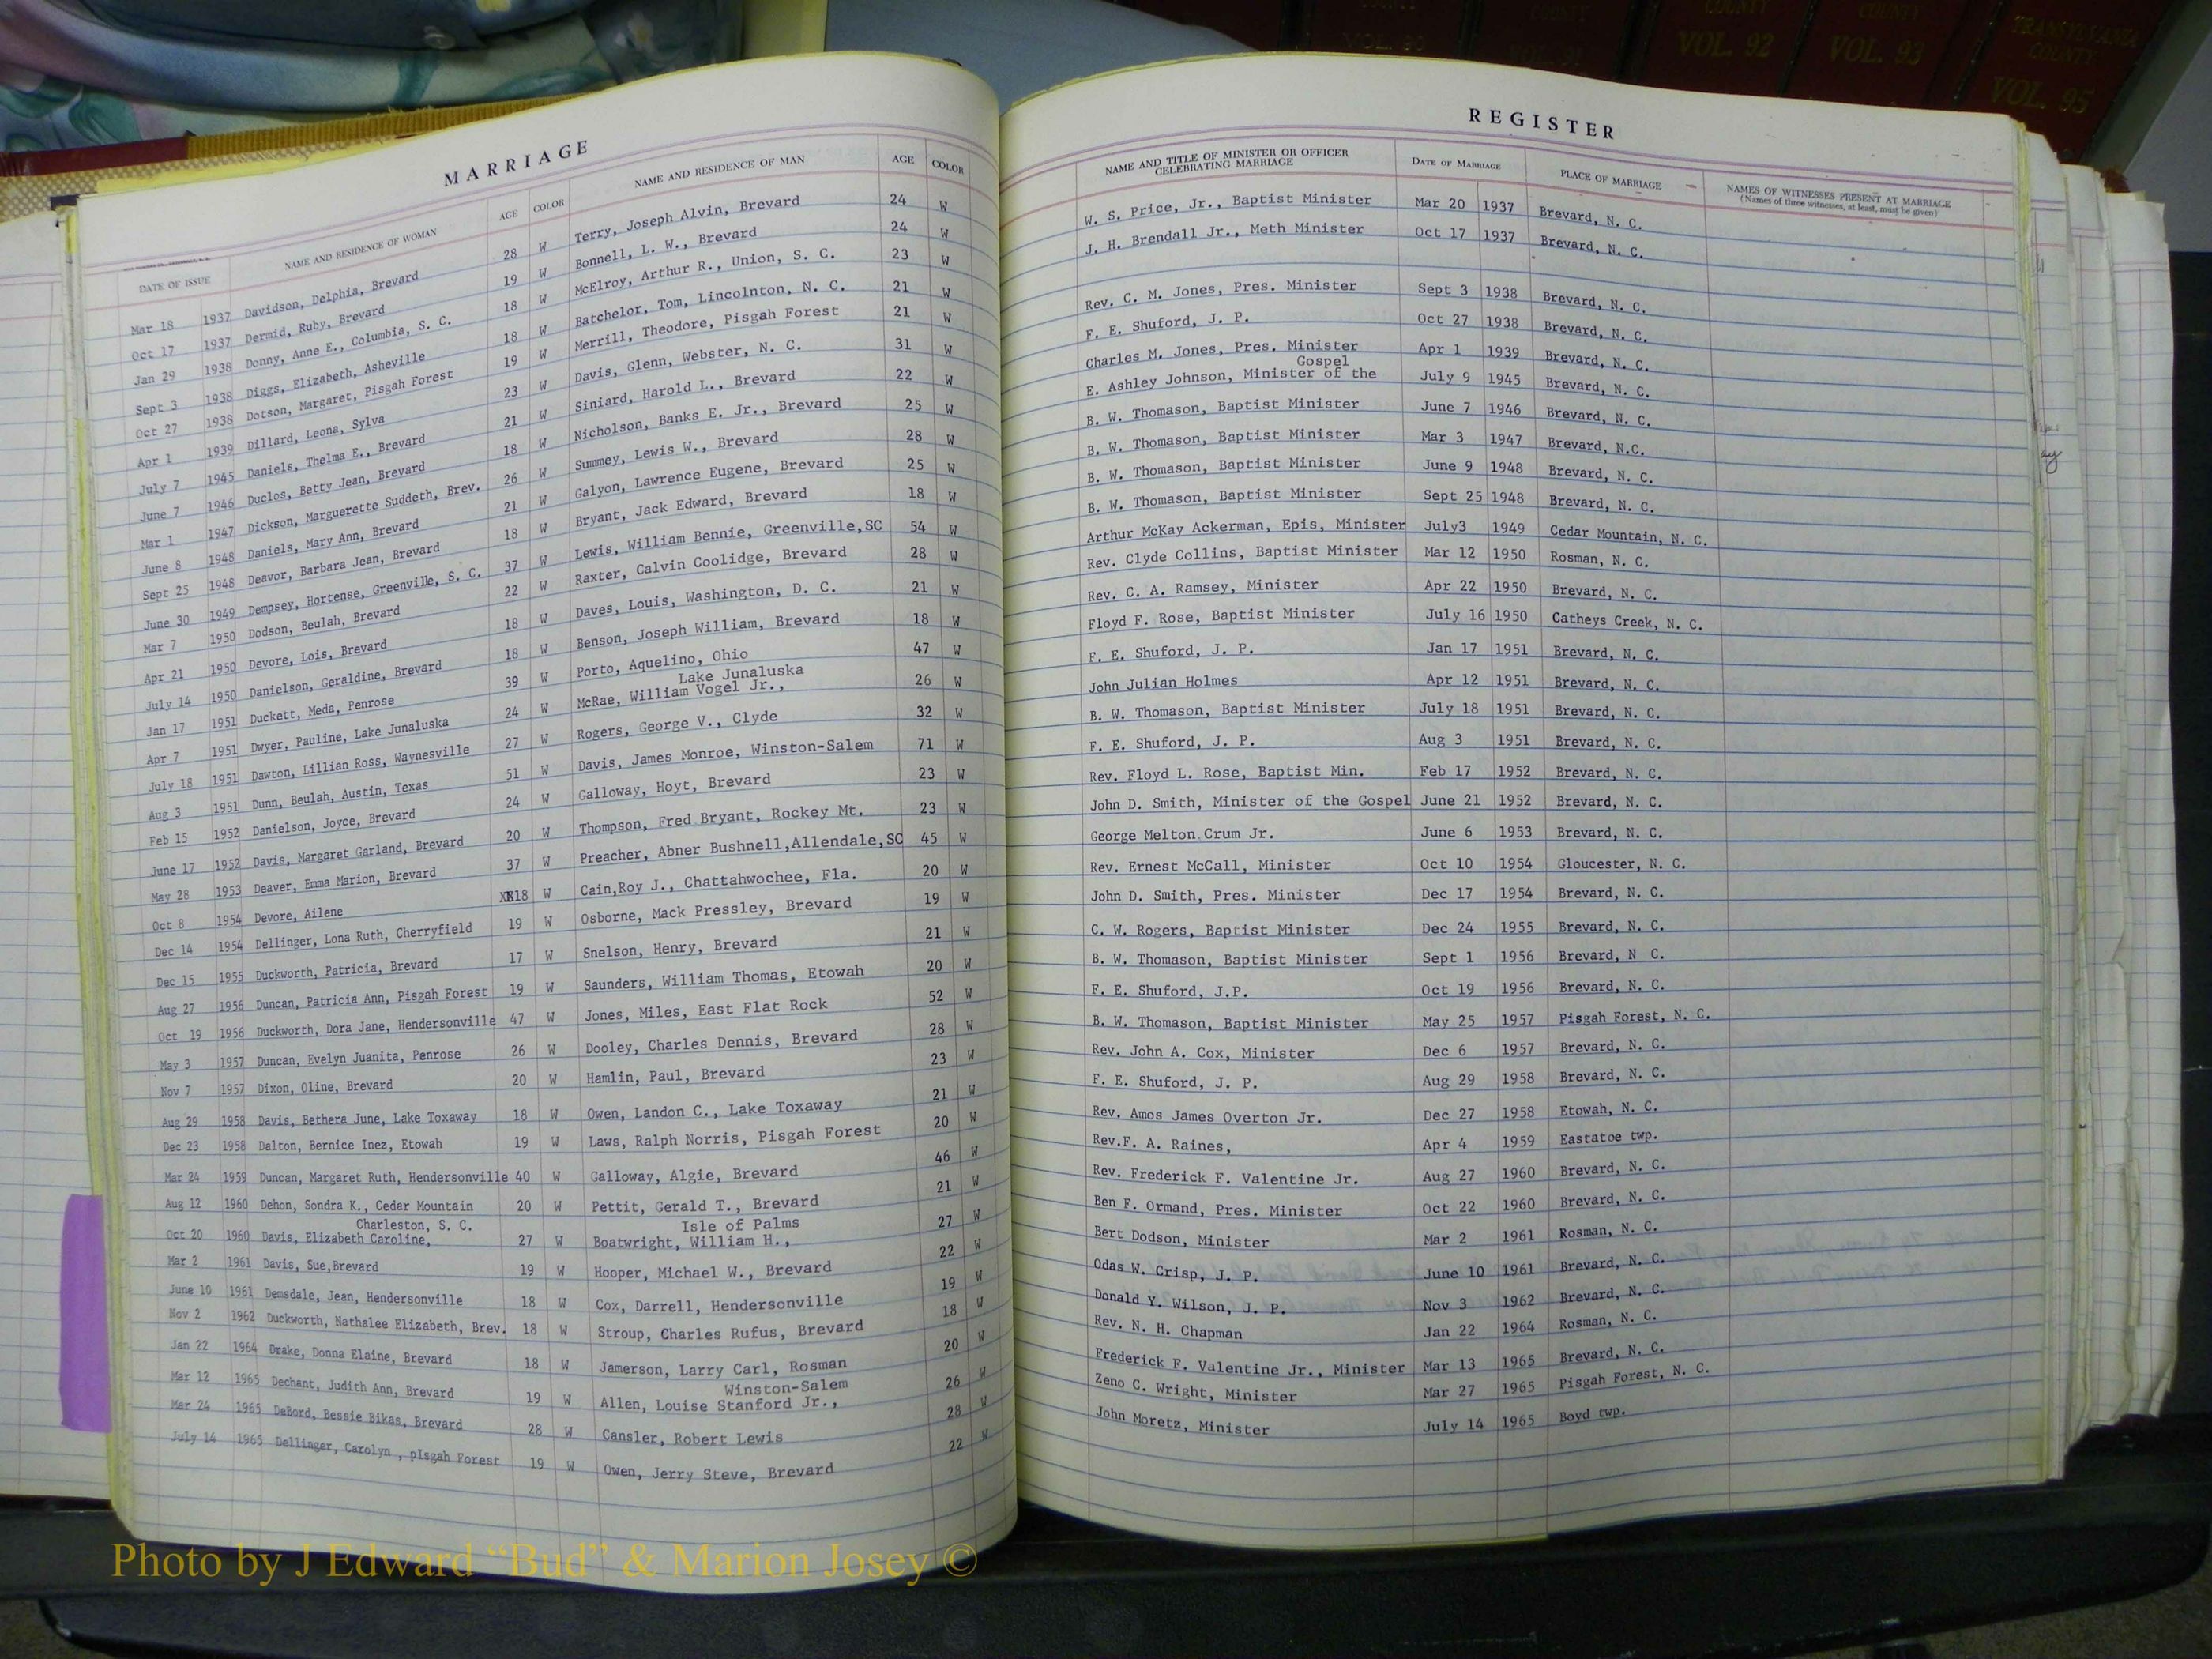 MARRIAGE
DATE OF ISSUE NAME AND RESIDENCE OF WOMAN AGE COLOR NAME AND RESIDENCE OF MAN AGE COLOR
Mar 18 1937 Davidson, Delphia, Brevard 28 W Terry, Joseph Alvin, Brevard 24 W
Oct 17 1937 Dermid, Ruby, Brevard 19 W Bonnell, L. W., Brevard 24 W
Jan 29 1938 Donny, Anne E., Columbia, S. C. 18 W McElroy, Arthur R., Union, S. C. 23 W
Sept 3 1938 Diggs, Elizabeth, Asheville 18 W Batchelor, Tom, Lincolnton, N. C. 21 W
Oct 27 1938 Dotson, Margaret, Pisgah Forest 19 W Merrill, Theodore, Pisgah Forest 21 W
Apr 1 1939 Dillard, Leona, Sylva 23 W Davis, Glenn, Webster, N. C. 31 W
July 7 1945 Daniels, Thelma E., Brevard 21 W Siniard, Harold L., Brevard 22 W
June 7 1946 Duclos, Betty Jean, Brevard 18 W Nicholson, Banks E. Jr., Brevard 25 W
Mar 1 1947 Dickson, Marguerette Suddeth, Brev. 26 W Summey, Lewis W., Brevard 28 W
June 8 1948 Daniels, Mary Ann, Brevard 21 W Galyon, Lawrence Eugene, Brevard 25 W
Sept 25 1948 Deavor, Barbara Jean, Brevard 18 W Bryant, Jack Edward, Brevard 18 W
June 30 1949 Dempsey, Hortense, Greenville, S. C. 37 W Lewis, William Bennie, Greenville,SC 54 W
Mar 7 1950 Dodson, Beulah, Brevard 22 W Raxter, Calvin Coolidge, Brevard 28 W
Apr 21 1950 Devore, Lois, Brevard 18 W Daves, Louis, Washington, D. C. 21 W
July 14 1950 Danielson, Geraldine, Brevard 18 W Benson, Joseph William, Brevard 18 W
Jan 17 1951 Duckett, Meda, Penrose 39 W Porto, Aquelino, Ohio 47 W
Lake Junaluska
Apr 7 1951 Dwyer, Pauline, Lake Junaluska 24 W McRae, William Vogel Jr., 26 W
July 18 1951 Dawton, Lillian Ross, Waynesville 27 W Rogers, George V., Clyde 32 W
Aug 3 1951 Dunn, Beulah, Austin, Texas 51 W Davis, James Monroe, Winston-Salem 71 W
Feb 15 1952 Danielson, Joyce, Brevard 24 W Galloway, Hoyt, Brevard 23 W
June 17 1952 Davis, Margaret Garland, Brevard 20 W Thompson, Fred Bryant, Rockey Mt. 23 W
May 28 1953 Deaver, Emma Marion, Brevard 37 W Preacher, Abner Bushnell,Allendale,SC 45 W
Oct 8 1954 Devore, Ailene 18 W Cain,Roy J., Chattahwochee, Fla. 20 W
Dec 14 1954 Dellinger, Lona Ruth, Cherryfield 19 W Osborne, Mack Pressley, Brevard 19 W
Dec 15 1955 Duckworth, Patricia, Brevard 17 W Snelson, Henry, Brevard 21 W
Aug 27 1956 Duncan, Patricia Ann, Pisgah Forest 19 W Saunders, William Thomas, Etowah 20 W
Oct 19 1956 Duckworth, Dora Jane, Hendersonville 47 W Jones, Miles, East Flat Rock 52 W
May 3 1957 Duncan, Evelyn Juanita, Penrose 26 W Dooley, Charles Dennis, Brevard 28 W
Nov 7 1957 Dixon, Oline, Brevard 20 W Hamlin, Paul, Brevard 23 W
Aug 29 1958 Davis, Bethera June, Lake Toxaway 18 W Owen, Landon C., Lake Toxaway 21 W
Dec 23 1958 Dalton, Bernice Inez, Etowah 19 W Laws, Ralph Norris, Pisgah Forest 20 W
Mar 24 1959 Duncan, Margaret Ruth, Hendersonville 40 W Galloway, Algie, Brevard 46 W
Aug 12 1960 Dehon, Sondra K., Cedar Mountain 20 W Pettit, Gerald T., Brevard 21 W
Charleston, S. C. Isle of Palms
Oct 20 1960 Davis, Elizabeth Caroline, 27 W Boatwright, William H., 27 W
Mar 2 1961 Davis, Sue,Brevard 19 W Hooper, Michael W., Brevard 22 W
June 10 1961 Demsdale, Jean, Hendersonville 18 W Cox, Darrell, Hendersonville 19 W
Nov 2 1962 Duckworth, Nathalee Elizabeth, Brev. 18 W Stroup, Charles Rufus, Brevard 18 W
Jan 22 1964 Drake, Donna Elaine, Brevard 18 W Jamerson, Larry Carl, Rosman 20 W
Winston-Salem
Mar 12 1965 Dechant, Judith Ann, Brevard 19 W Allen, Louise Stanford Jr., 26 W
Mar 24 1965 DeBord, Bessie Bikas, Brevard 28 W Cansler, Robert Lewis 28 W
July 14 1965 Dellinger, Carolyn , pIsgah Forest 19 W Owen, Jerry Steve, Brevard 22 W
REGISTER
NAME AND TITLE OF MINISTER OR OFFICER CELEBRATING MARRIAGE DATE OF MARRIAGE PLACE OF MARRIAGE NAMES OF WITNESSES PRESENT AT MARRIAGE
(Names of three witnesses, at least, must be given)
W. S. Price, Jr., Baptist Minister Mar 20 1937 Brevard, N. C.
J. H. Brendall Jr., Meth Minister Oct 17 1937 Brevard, N. C.
Rev. C. M. Jones, Pres. Minister Sept 3 1938 Brevard, N. C.
F. E. Shuford, J. P. Oct 27 1938 Brevard, N. C.
Charles M. Jones, Pres. Minister Apr 1 1939 Brevard, N. C.
Gospel
E. Ashley Johnson, Minister of the July 9 1945 Brevard, N. C.
B. W. Thomason, Baptist Minister June 7 1946 Brevard, N. C.
B. W. Thomason, Baptist Minister Mar 3 1947 Brevard, N.C.
B. W. Thomason, Baptist Minister June 9 1948 Brevard, N. C.
B. W. Thomason, Baptist Minister Sept 25 1948 Brevard, N. C.
Arthur McKay Ackerman, Epis, Minister July3 1949 Cedar Mountain, N. C.
Rev. Clyde Collins, Baptist Minister Mar 12 1950 Rosman, N. C.
Rev. C. A. Ramsey, Minister Apr 22 1950 Brevard, N. C.
Floyd F. Rose, Baptist Minister July 16 1950 Catheys Creek, N. C.
F. E. Shuford, J. P. Jan 17 1951 Brevard, N. C.
John Julian Holmes Apr 12 1951 Brevard, N. C.
B. W. Thomason, Baptist Minister July 18 1951 Brevard, N. C.
F. E. Shuford, J. P. Aug 3 1951 Brevard, N. C.
Rev. Floyd L. Rose, Baptist Min. Feb 17 1952 Brevard, N. C.
John D. Smith, Minister of the Gospel June 21 1952 Brevard, N. C.
George Melton Crum Jr. June 6 1953 Brevard, N. C.
Rev. Ernest McCall, Minister Oct 10 1954 Gloucester, N. C.
John D. Smith, Pres. Minister Dec 17 1954 Brevard, N. C.
C. W. Rogers, Baptist Minister Dec 24 1955 Brevard, N. C.
B. W. Thomason, Baptist Minister Sept 1 1956 Brevard, N C.
F. E. Shuford, J.P. Oct 19 1956 Brevard, N. C.
B. W. Thomason, Baptist Minister May 25 1957 Pisgah Forest, N. C.
Rev. John A. Cox, Minister Dec 6 1957 Brevard, N. C.
F. E. Shuford, J. P. Aug 29 1958 Brevard, N. C.
Rev. Amos James Overton Jr. Dec 27 1958 Etowah, N. C.
Rev.F. A. Raines, Apr 4 1959 Eastatoe twp.
Rev. Frederick F. Valentine Jr. Aug 27 1960 Brevard, N. C.
Ben F. Ormand, Pres. Minister Oct 22 1960 Brevard, N. C.
Bert Dodson, Minister Mar 2 1961 Rosman, N. C.
Odas W. Crisp, J. P. June 10 1961 Brevard, N. C.
Donald Y. Wilson, J. P. Nov 3 1962 Brevard, N. C.
Rev. N. H. Chapman Jan 22 1964 Rosman, N. C.
Frederick F. Valentine Jr., Minister Mar 13 1965 Brevard, N. C.
Zeno C. Wright, Minister Mar 27 1965 Pisgah Forest, N. C.
John Moretz, Minister July 14 1965 Boyd twp.
COUNTY
VOL. 92
COUNTY
VOL. 93
TRANSYLVANIA
COUNTY
VOL. 95
Photo by J Edward “Bud” & Marion Josey ©